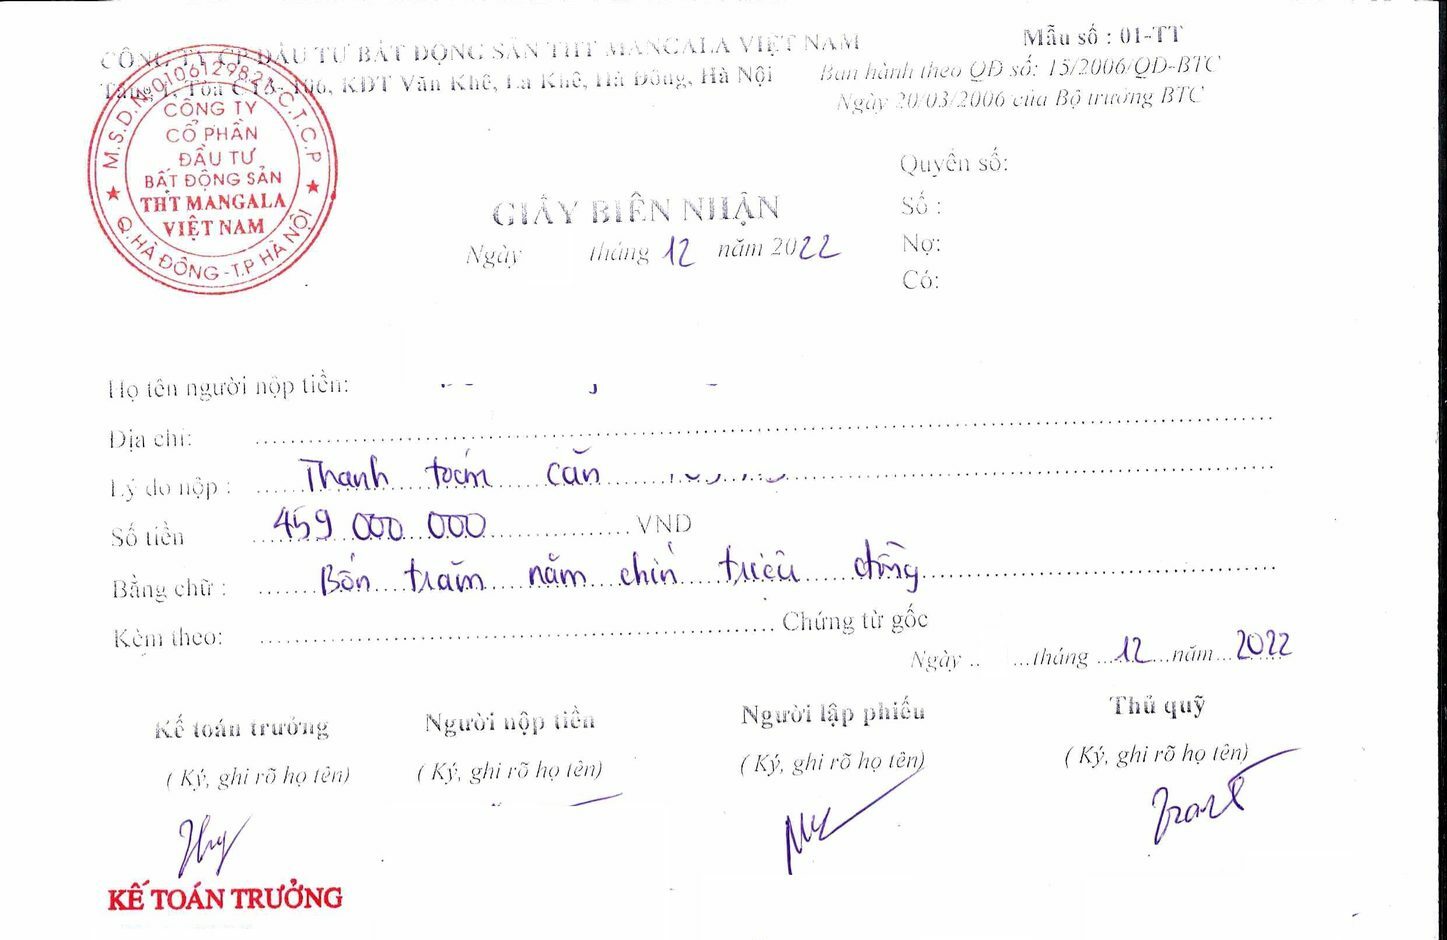 CÔNG TY CP ĐẦU TƯ BẤT ĐỘNG SẢN THT MANGALA VIỆT NAM
Tầng 1, Tòa CT3-106, KĐT Văn Khê, La Khê, Hà Đông, Hà Nội
Mẫu số : 01-TT
Ban hành theo QĐ số: 15/2006/QĐ-BTC
Ngày 20/03/2006 của Bộ trưởng BTC
M.S.D.N:0106129821-C.T.C.P
CÔNG TY
CỔ PHẦN
ĐẦU TƯ
BẤT ĐỘNG SẢN
THT MANGALA
VIỆT NAM
Q.HÀ ĐÔNG-T.P HÀ NỘI
Quyển số:
Số :
Nợ:
Có:
GIẤY BIÊN NHẬN
Ngày tháng 12 năm 2022
Họ tên người nộp tiền:
Địa chỉ:
Lý do nộp : Thanh toán căn
Số tiền 459 000 000 VND
Bằng chữ : Bốn trăm năm chín triệu đồng
Kèm theo: Chứng từ gốc
Ngày tháng 12 năm 2022
Kế toán trưởng Người nộp tiền Người lập phiếu Thủ quỹ
( Ký, ghi rõ họ tên) ( Ký, ghi rõ họ tên) ( Ký, ghi rõ họ tên) ( Ký, ghi rõ họ tên)
KẾ TOÁN TRƯỞNG